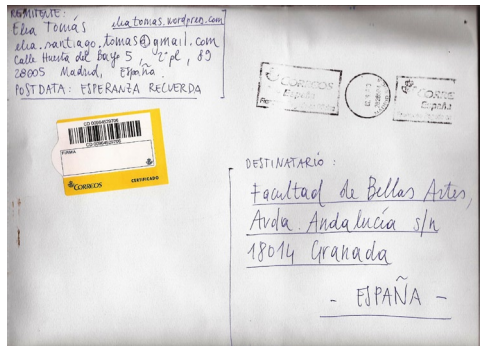 REMITENTE:
Elia Tomás eliatomas.wordpress.com
elia.santiago.tomas@gmail.com
Calle Huerta del Bayo 5, 2º pl, 89
28005 Madrid, España.
POSTDATA: ESPERANZA RECUERDA
CORREOS
España
CORRE
España
CORREOS
CERTIFICADO
DESTINATARIO:
Facultad de Bellas Artes,
Avda. Andalucía s/n
18014 Granada
- ESPAÑA -